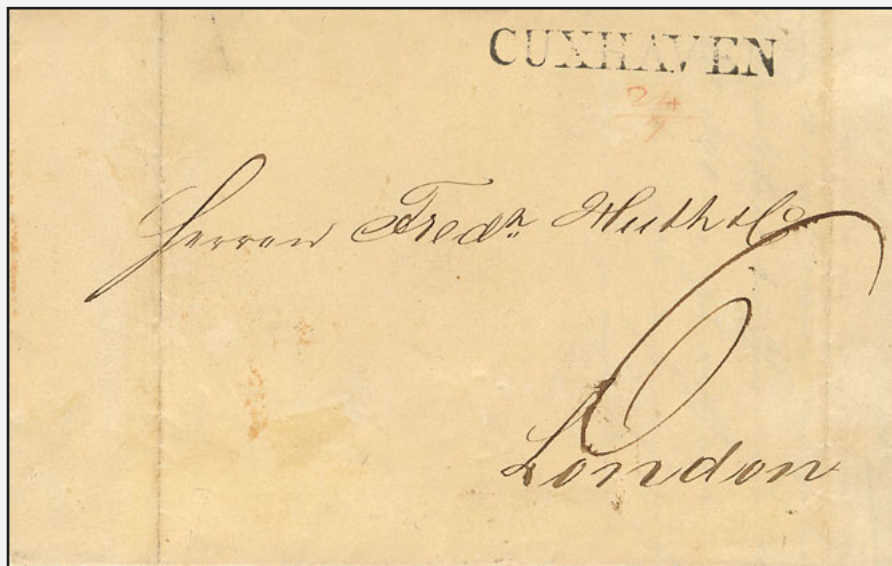 CUXHAVEN
24
9
Herren Fredk Huth & Co
6
London